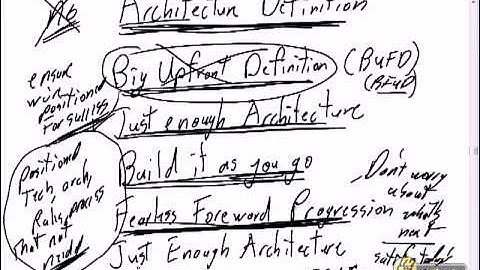 No
Architecture Definition
Big Upfront Definition (BUFD)
(BFUD)
ensure
we're
positioned
for success
Just enough Architecture
Build it as you go
Positioned
Tech, arch,
Rules, process
That not
Fearless Foreword Progression
Don't worry
about
what's
next
Just Enough Architecture
satisfy today's